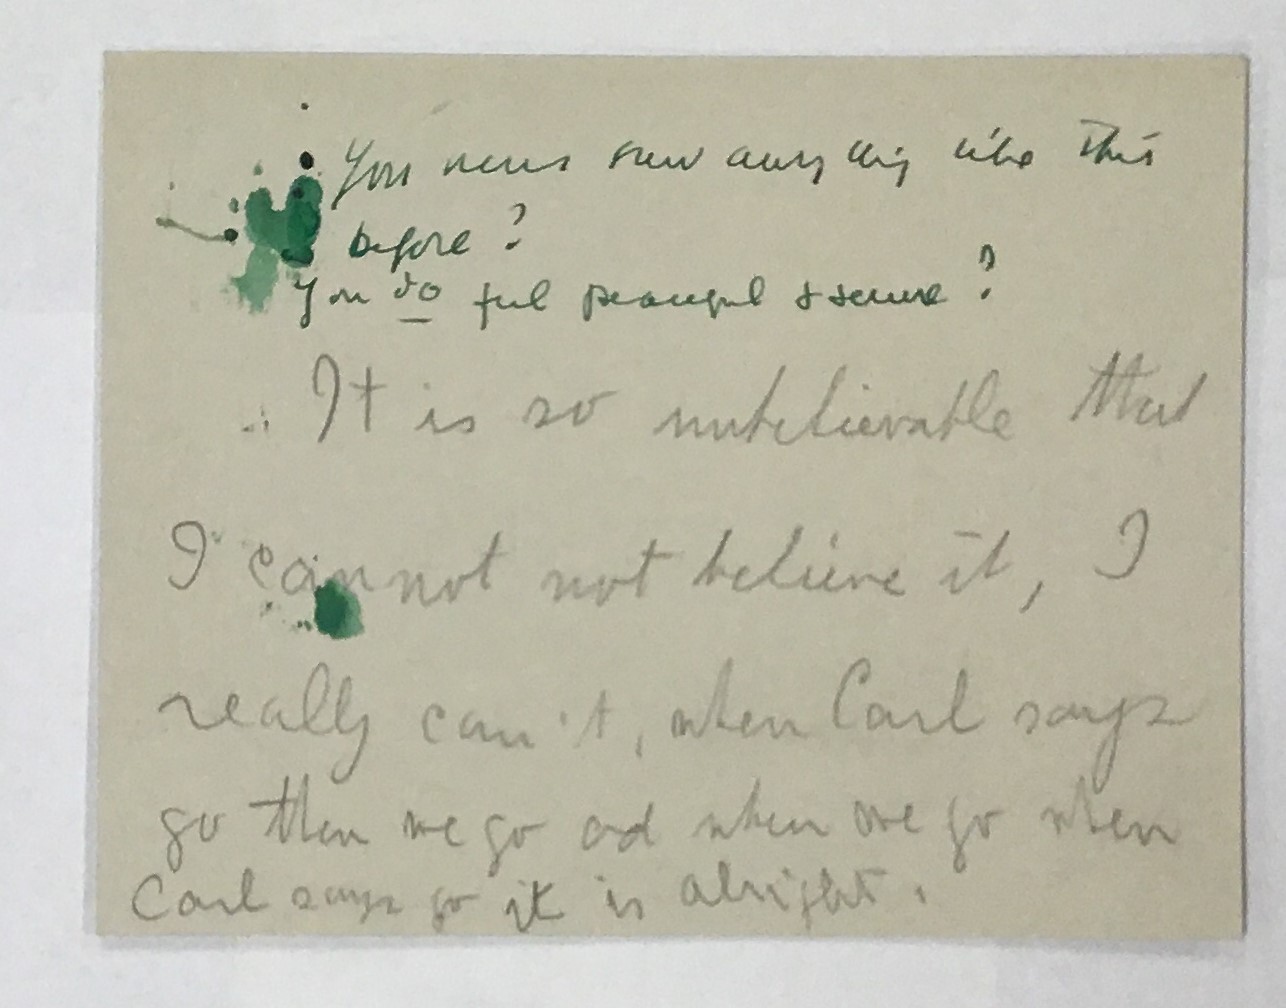 You never saw anything like this
before?
You do feel peaceful & secure?
It is so unbelievable that
I cannot not believe it, I
really can't, when Carl says
go then we go and when we go when
Carl says go it is alright.